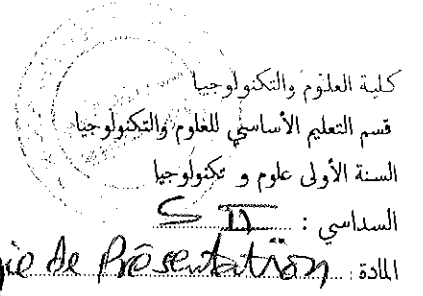 كلية العلوم والتكنولوجيا
قسم التعليم الأساسي للعلوم والتكنولوجيا
السنة الأولى علوم و تكنولوجيا
السداسي : S II
المادة : gie de Présentation